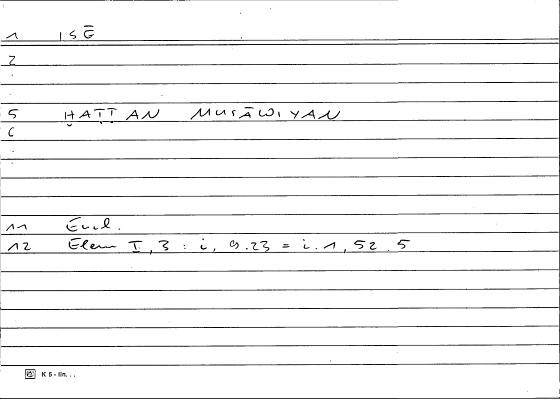 1 ISĒ
2
5 ḪAṬṬAN MUSĀWIYAN
6
11 Eucl.
12 Elem I, 3 : i, 9.23 = i.1, 52.5
K 5 - lin. . .